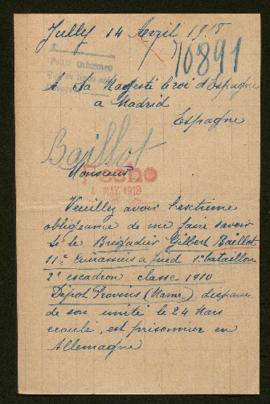 Jully 14 Avril 1918
10891
A Sa Majesté le roi d'Espagne
a Madrid
Espagne
Baillot
Monsieur
MAY. 1918
Veuillez avoir l'extrême
obligeance de me faire savoir
si le Brigadier Gilbert Baillot
11e Cuirassiers à pied 1r bataillon
2e escadron classe 1910
Dépôt Provins (Marne) disparu
de son unité le 24 Mars
écoulé, est prisonnier en
Allemagne